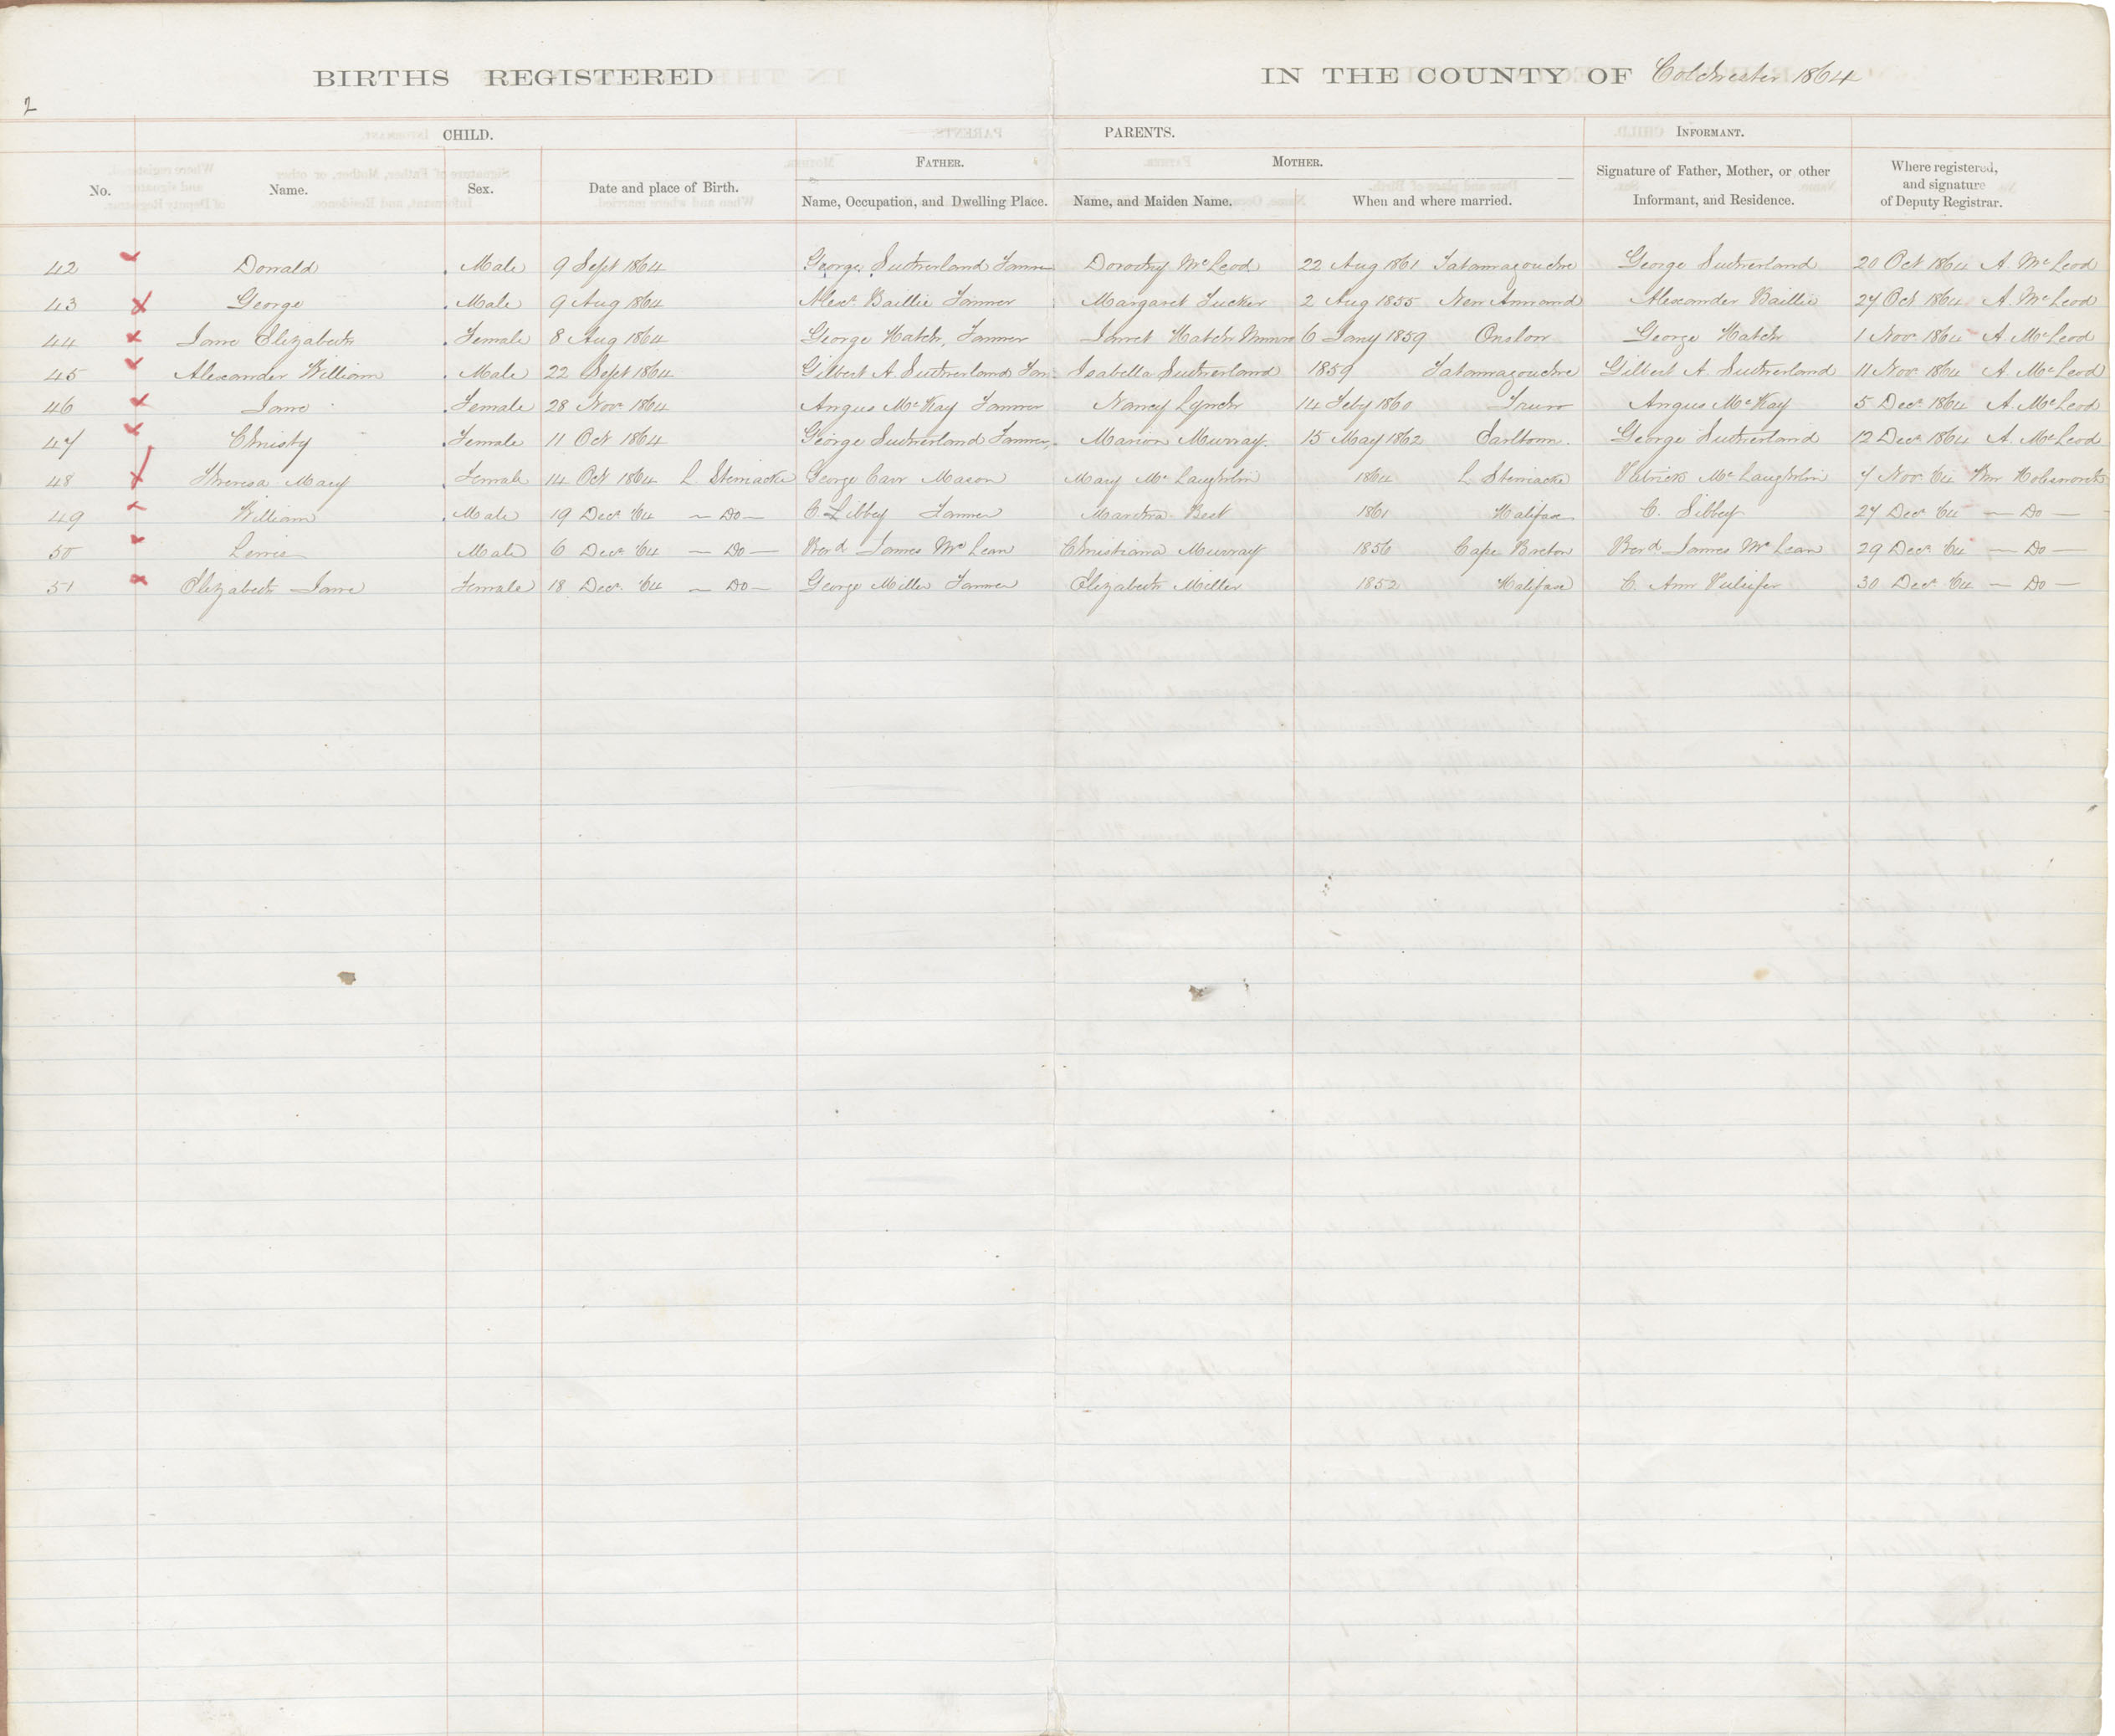 BIRTHS REGISTERED IN THE COUNTY OF Colchester 1864
2
CHILD. PARENTS. INFORMANT.
FATHER. MOTHER.
No. Name. Sex. Date and place of Birth. Name, Occupation, and Dwelling Place. Name, and Maiden Name. When and where married. Signature of Father, Mother, or other Informant, and Residence. Where registered, and signature of Deputy Registrar.
42 Donald Male 9 Sept 1864 George Sutherland Farmer Dorothy McLeod 22 Aug 1861 Tatamagouche George Sutherland 20 Oct 1864 A. McLeod
43 George Male 9 Aug 1864 Alexr Baillie Farmer Margaret Tucker 2 Aug 1855 New Annand Alexander Baillie 27 Oct 1864 A. McLeod
44 Jane Elizabeth Female 8 Aug 1864 George Hatch, Farmer Janet Hatch Munro 6 Jany 1859 Onslow George Hatch 1 Nov 1864 A. McLeod
45 Alexander William Male 22 Sept 1864 Gilbert A. Sutherland Far Isabella Sutherland 1859 Tatamagouche Gilbert A. Sutherland 11 Nov 1864 A. McLeod
46 Jane Female 28 Nov 1864 Angus McKay Farmer Nancy Lynch 14 Feby 1860 Truro Angus McKay 5 Decr 1864 A. McLeod
47 Christy Female 11 Oct 1864 George Sutherland Farmer, Marion Murray. 15 May 1862 Earltown. George Sutherland 12 Decr 1864 A. McLeod
48 Theresa Mary Female 14 Oct 1864 L Stewiacke George Carr Mason Mary McLaughlin 1864 L Stewiacke Patrick McLaughlin 7 Nov 64 Wm Holesworth
49 William Male 19 Decr 64 — Do — C. Libbey Farmer Martha Best 1861 Halifax C. Libbey 27 Decr 64 — Do —
50 Lewis Male 6 Decr 64 — Do — Revd James McLean Christiana Murray 1856 Cape Breton Revd James McLean 29 Decr 64 — Do —
51 Elizabeth Jane Female 18 Decr 64 — Do — George Miller Farmer Elizabeth Miller 1852 Halifax C. Ann Pulsifer 30 Decr 64 — Do —